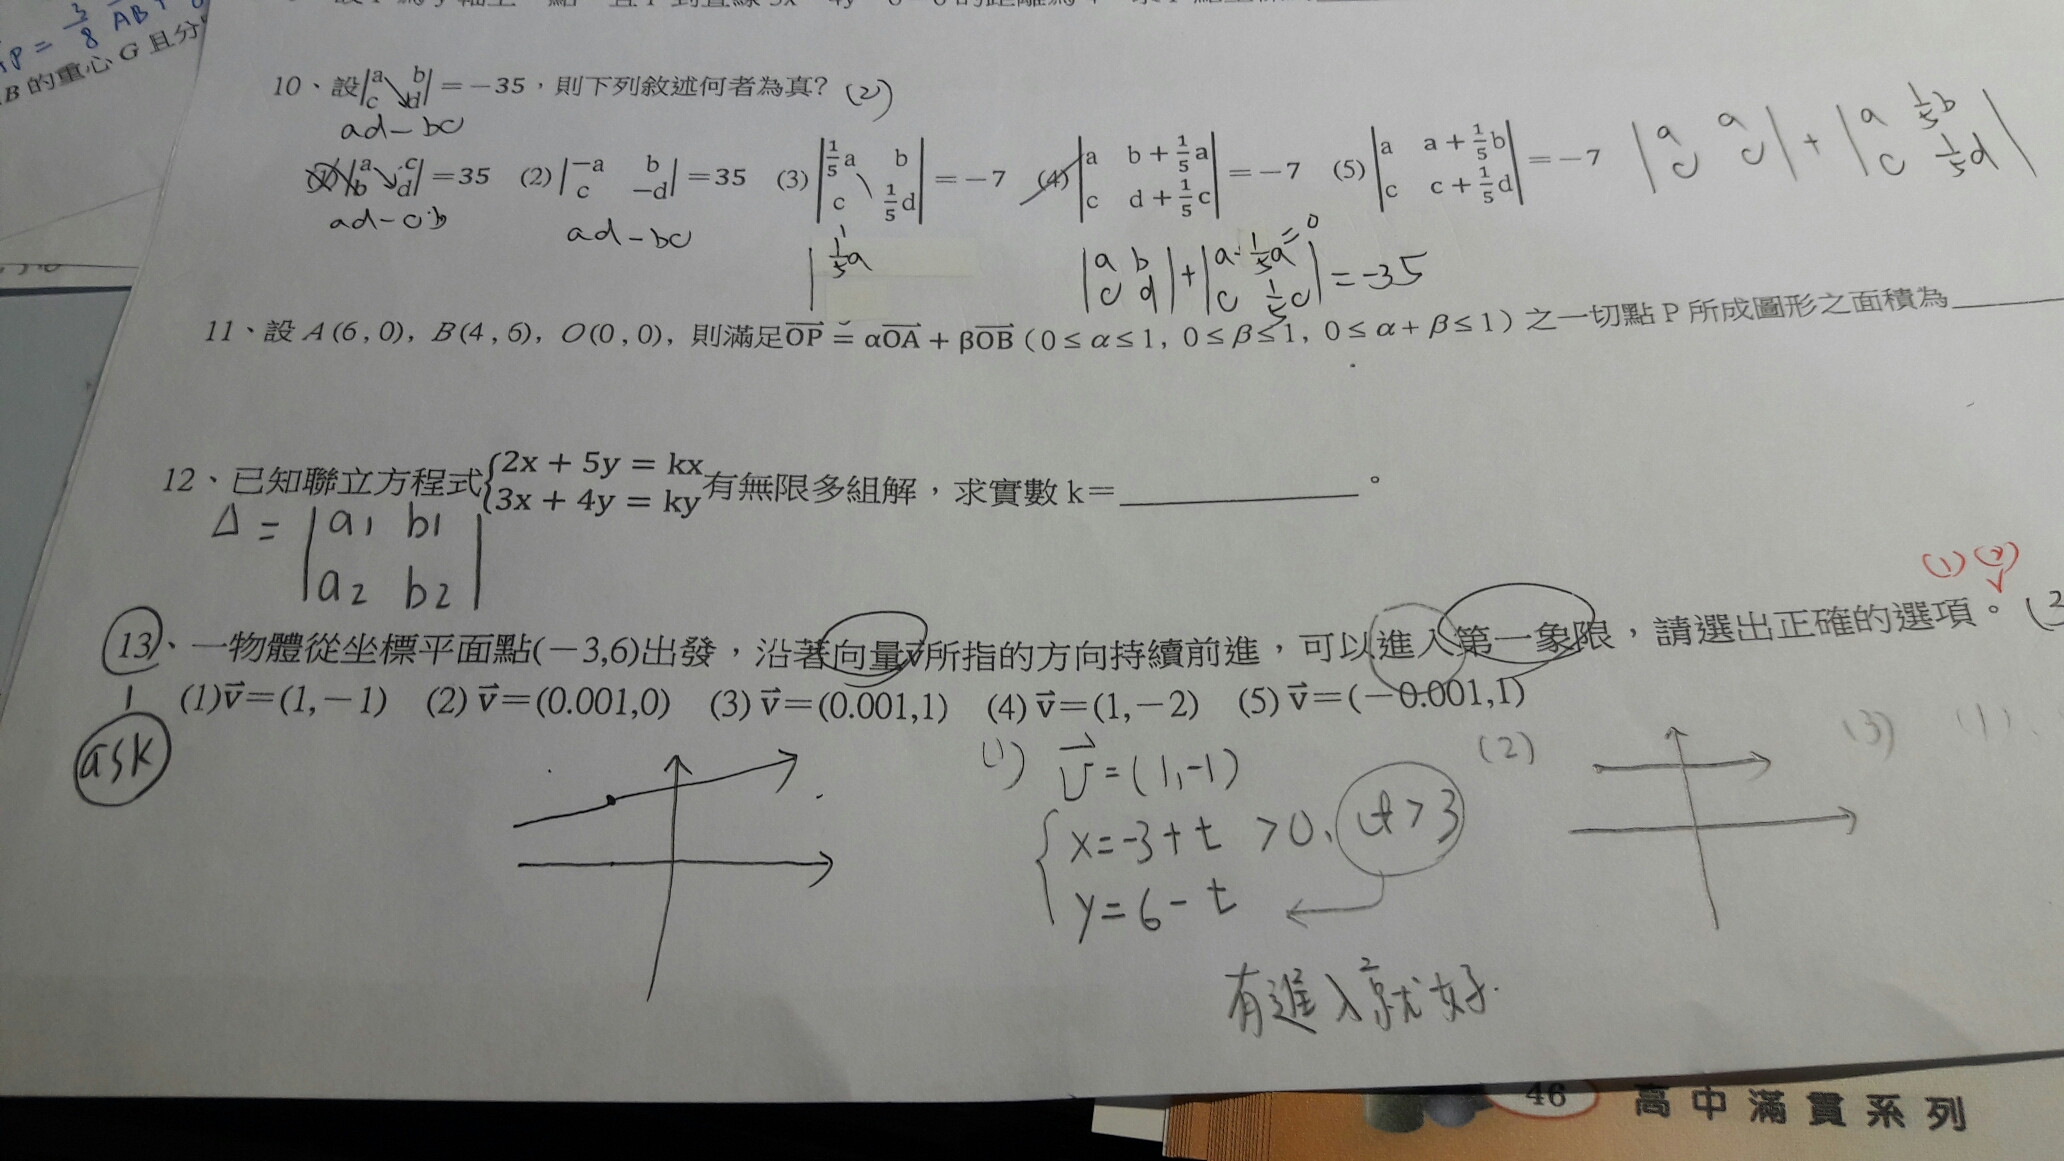 B 的重心 G 且分
10、設|a b c d|=-35，則下列敘述何者為真? (2)
ad-bc
(1)|a c b d|=35 (2)|-a b c -d|=35 (3)|1/5a b c 1/5d|=-7 (4)|a b+1/5a c d+1/5c|=-7 (5)|a a+1/5b c c+1/5d|=-7 |a a c c|+|a 1/5b c 1/5d|
ad-cb
ad-bc
|1/5a
|a b c d|+|a 1/5a c 1/5c|=-35
=0
11、設 A(6,0), B(4,6), O(0,0), 則滿足OP = αOA + βOB (0≤α≤1, 0≤β≤1, 0≤α+β≤1) 之一切點 P 所成圖形之面積為
12、已知聯立方程式{2x + 5y = kx 3x + 4y = ky有無限多組解，求實數 k=。
Δ = |a1 b1 a2 b2|
(1) (2)
13、一物體從坐標平面點(-3,6)出發，沿著向量v所指的方向持續前進，可以進入第一象限，請選出正確的選項。
(1)v=(1,-1) (2) v=(0.001,0) (3) v=(0.001,1) (4) v=(1,-2) (5) v=(-0.001,1)
ask
(1) v=(1,-1)
x=-3+t >0, t>3
y=6-t
(2)
(3) (1).
有進入就好.
46 高中滿貫系列